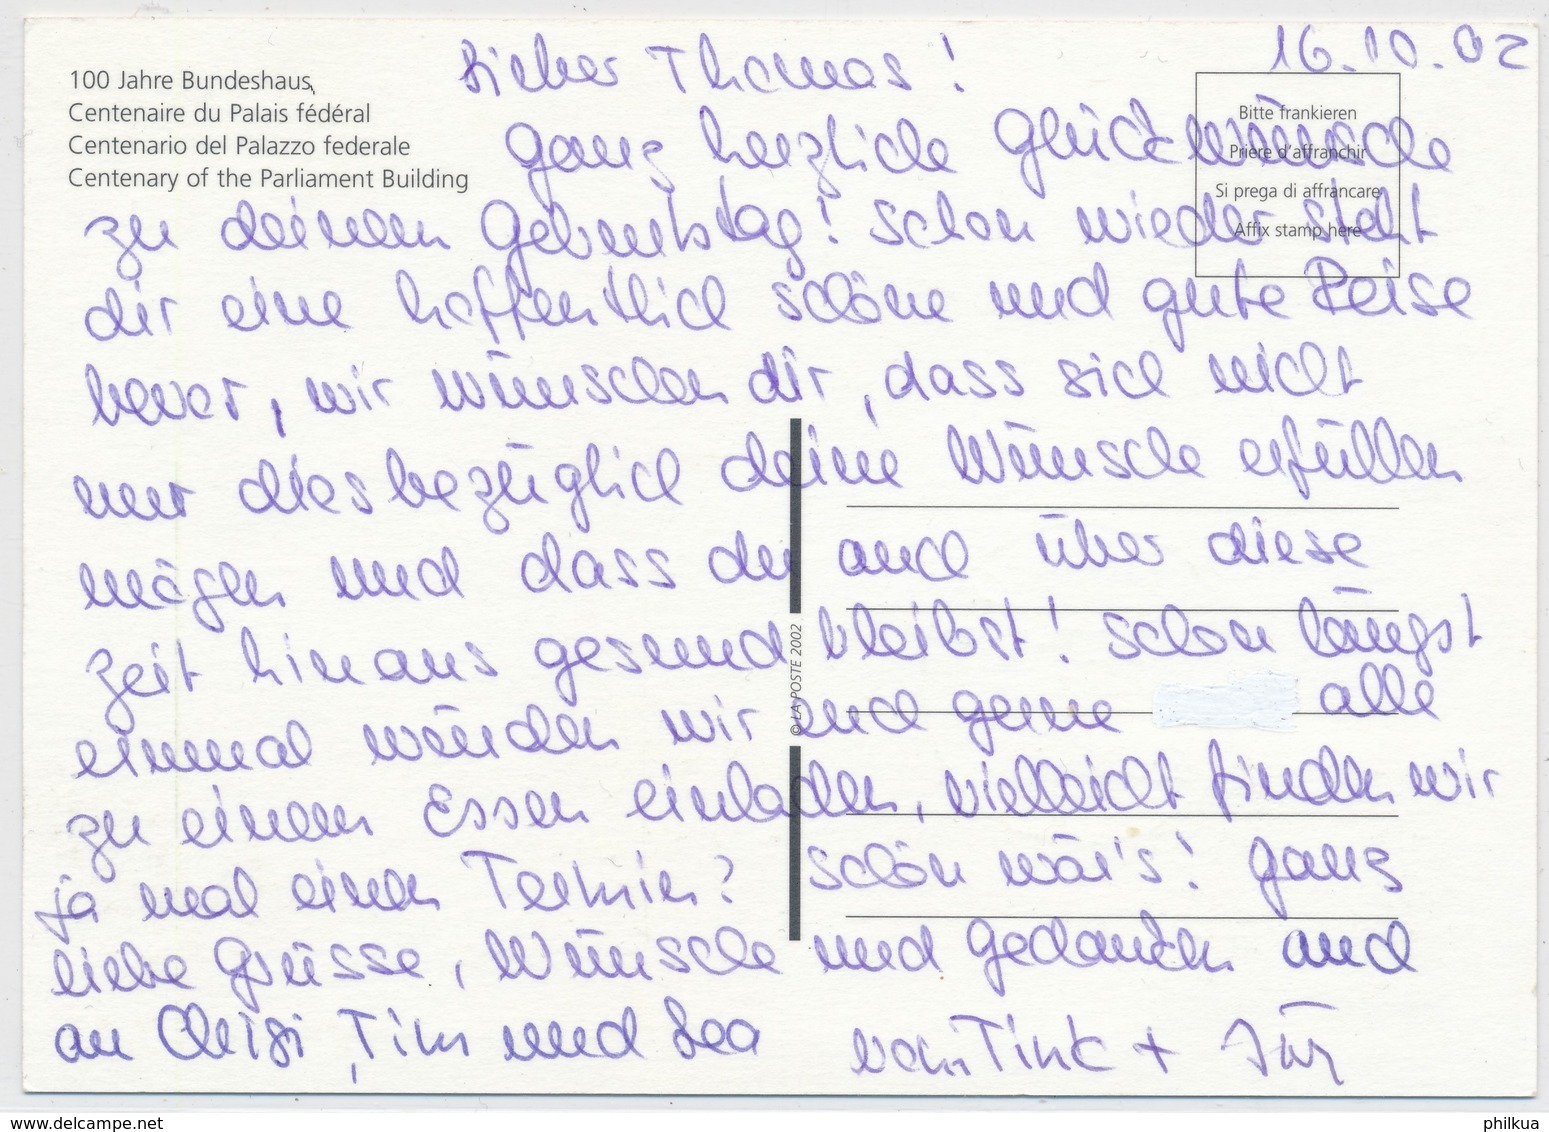 16.10.02
Lieber Thomas!
100 Jahre Bundeshaus
Centenaire du Palais fédéral
Centenario del Palazzo federale
Centenary of the Parliament Building
Bitte frankieren
Prière d'affranchir
Si prega di affrancare
Affix stamp here
ganz herzliche Glückwünsche
zu deinem Geburtstag! Schon wieder steht
dir eine hoffentlich schöne und gute Reise
bevor, wir wünschen dir, dass sich nicht
nur diesbezüglich deine Wünsche erfüllen
mögen und dass du auch über diese
Zeit hinaus gesund bleibst! Schon längst
einmal würden wir euch gerne alle
zu einem Essen einladen, vielleicht finden wir
ja mal einen Termin? Schön wär's! Ganz
liebe Grüsse, Wünsche und Gedanken auch
an Chrigi, Tim und Lea von Tink + Jürg
© LA POSTE 2002
www.delcampe.net
philkua